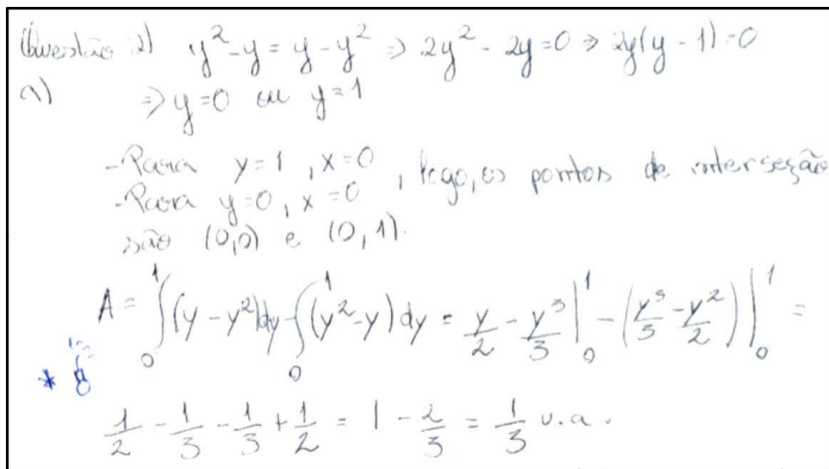 Questão 2) y² - y = y - y² ⇒ 2y² - 2y = 0 ⇒ 2y(y - 1) = 0
a) ⇒ y = 0 ou y = 1
- Para y = 1, x = 0
- Para y = 0, x = 0, logo, os pontos de interseção
são (0,0) e (0,1).
A = ∫₀¹ (y - y²)dy - ∫₀¹ (y² - y) dy = y/2 - y³/3 |₀¹ - (y³/3 - y²/2) |₀¹ =
*
1/2 - 1/3 - 1/3 + 1/2 = 1 - 2/3 = 1/3 u.a.